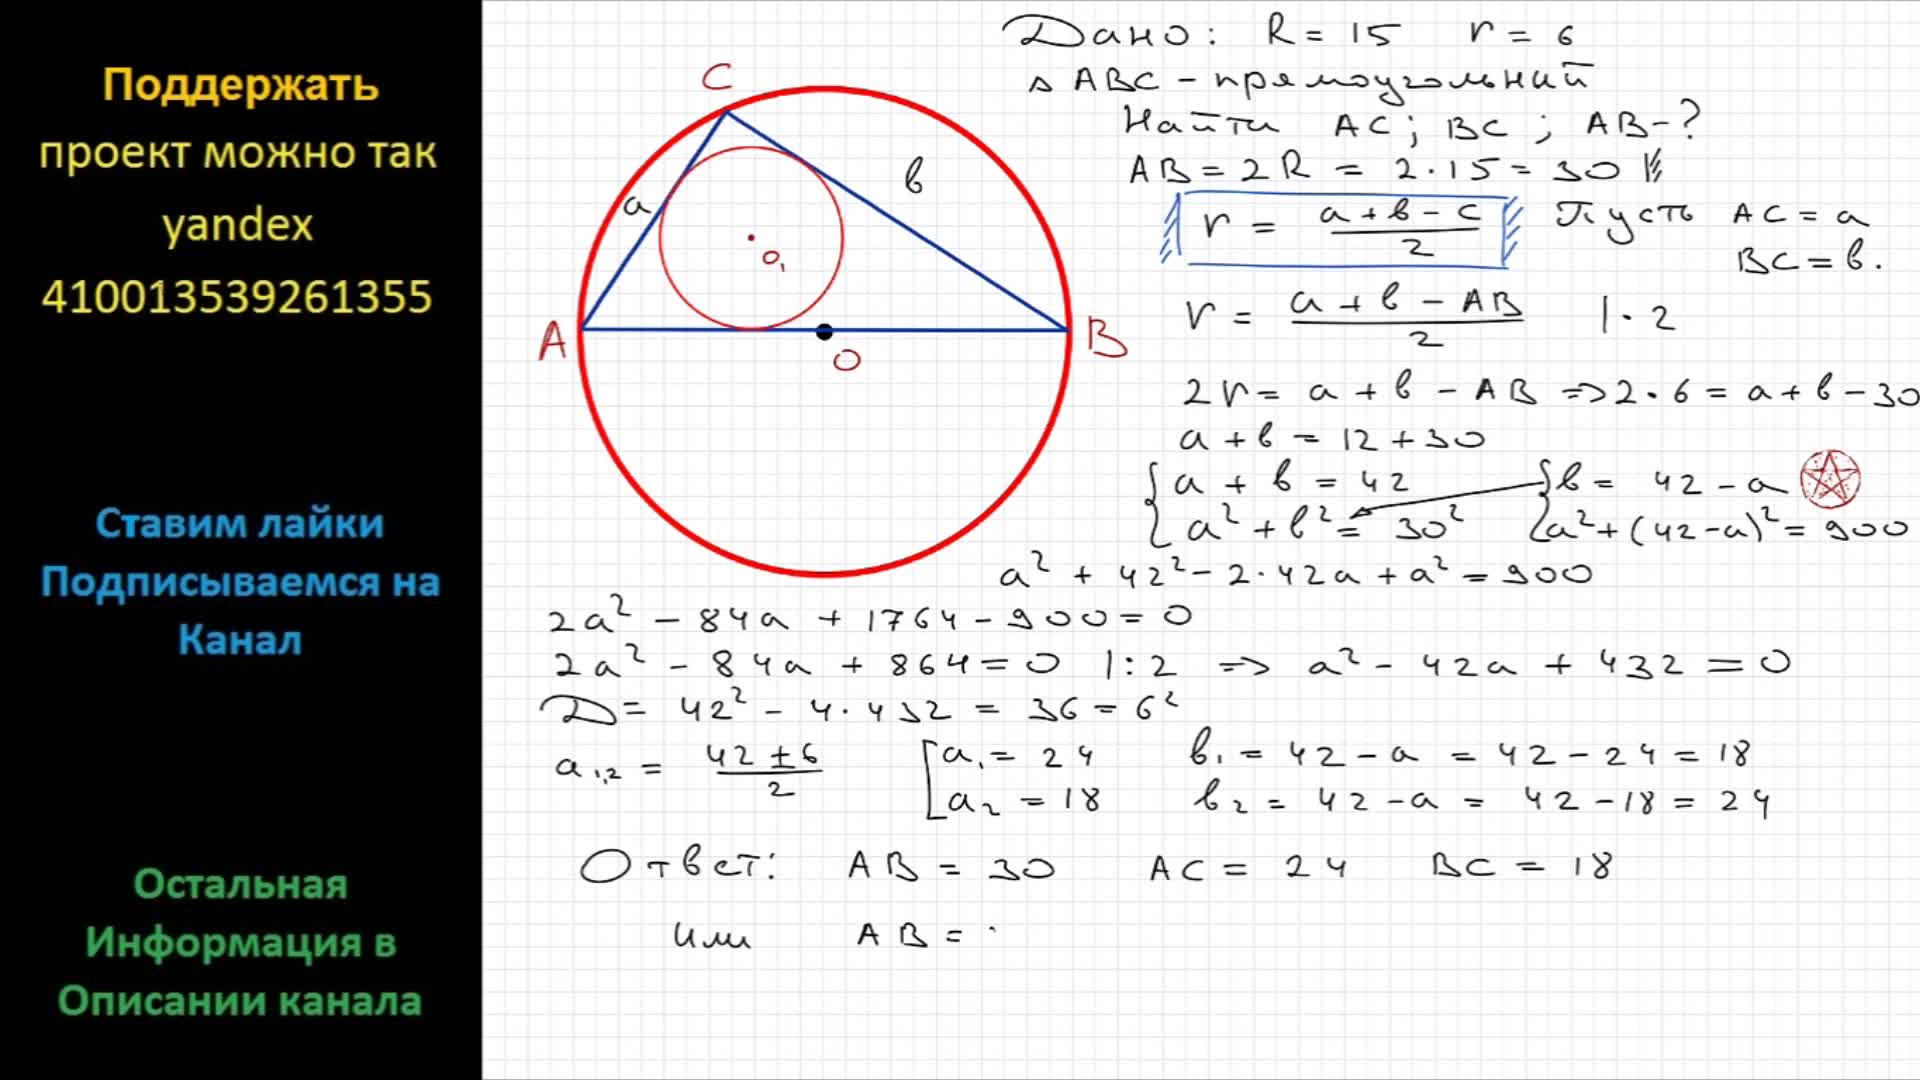 Поддержать
проект можно так
yandex
410013539261355
Ставим лайки
Подписываемся на
Канал
Остальная
Информация в
Описании канала
C
a
в
O₁
A
O
B
Дано: R = 15 r = 6
△ ABC - прямоугольний
Найти AC; BC; AB-?
AB = 2R = 2·15 = 30
r = (a + в - c)/2 Пусть AC = a
BC = в.
r = (a + в - AB)/2 |·2
2r = a + в - AB => 2·6 = a + в - 30
a + в = 12 + 30
{ a + в = 42 { в = 42 - a
a² + в² = 30² a² + (42-a)² = 900
a² + 42² - 2·42a + a² = 900
2a² - 84a + 1764 - 900 = 0
2a² - 84a + 864 = 0 |:2 => a² - 42a + 432 = 0
D = 42² - 4·432 = 36 = 6²
a₁,₂ = (42 ± 6)/2 [ a₁ = 24 в₁ = 42 - a = 42 - 24 = 18
a₂ = 18 в₂ = 42 - a = 42 - 18 = 24
Ответ: AB = 30 AC = 24 BC = 18
или AB =